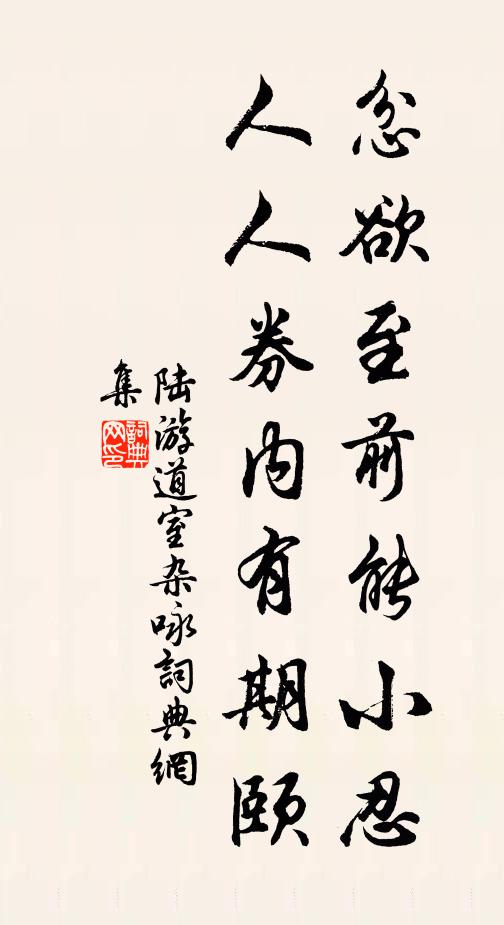 忿欲至前能小忍
人人券内有期颐
陆游道室杂咏詞典網
集
詞典网印